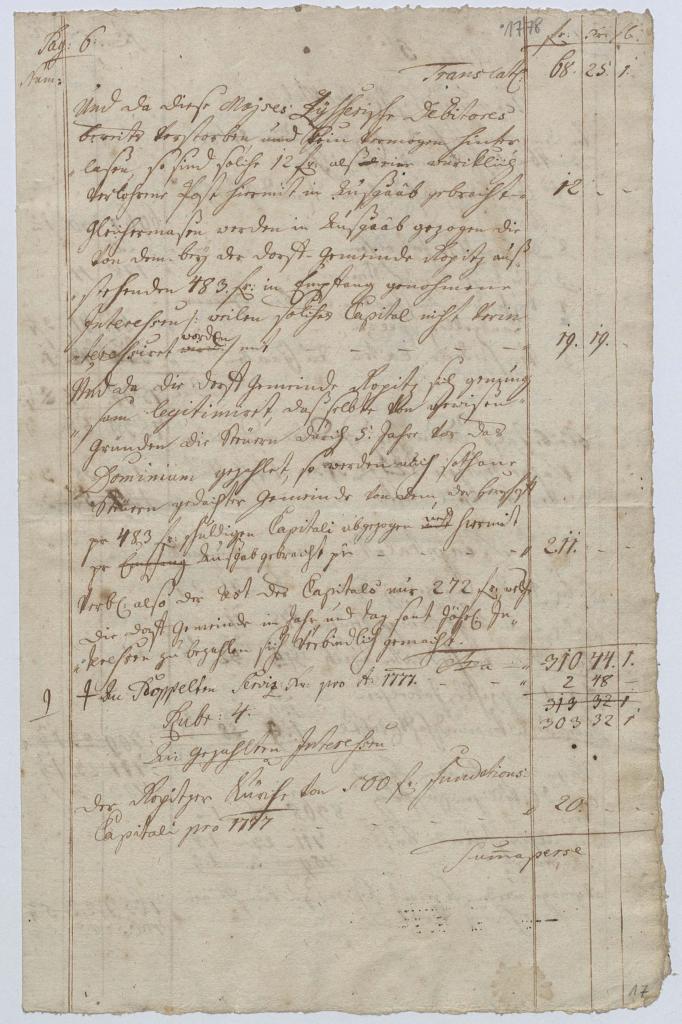 1778
Pag: 6. fr: xr: 1/6.
Num:
Translat: 68. 25. 1.
Und da diese Moyses Debitores
bereits verstorben und kein Vermögen hinter
lasen, so sind solche 12 fr: als eine würcklich
verlohrene Post hiermit in Ausgaab gebracht 12 - -
Gleichermasen werden in Ausgaab gezogen die
von dem bey der dorff Gemeinde Kopitz aus
stehenden 483. fr: in Empfang genohmene
Interessen /: weilen solches Capital nicht verin
teressiret worden :/ mit 19. 19. -
Und da die dorff Gemeinde Kopitz sich genung
sam legitimiret, das selbte von gewisen
Gründen die Steuern durch 5. Jahre vor das
Dominium gezahlet, so werden auch sothane
Steuern gedachter Gemeinde von dem
pr 483 fr: schuldigen Capitali abgezogen und hiermit
pr Empfang Ausgab gebracht pr 211. - -
Verbl: also der Rest des Capitals nur 272 fr: welche
die dorff Gemeinde in Jahr und Tag samt Interessen
zu bezahlen sich verbindlich gemacht.
310 44. 1.
9 † An Doppelten Servis pro A: 1777. 2 48 -
313 32 1
303 32 1
Rubr: 4.
An gezahlten Interessen
Der Kopitzer Kürche von 500 fr: Fundations
Capitali pro 1777 20. - -
Summa per se
17